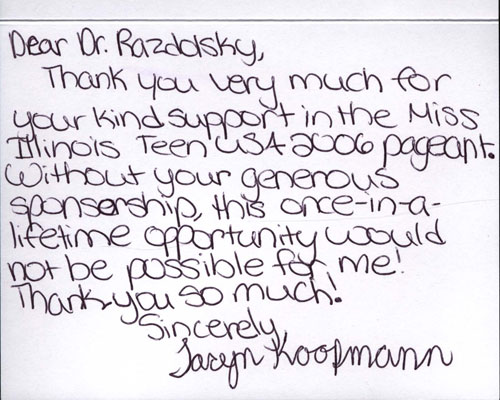 Dear Dr. Razdolsky,
Thank you very much for
your kind support in the Miss
Illinois Teen USA 2006 pageant.
Without your generous
sponsership, this once-in-a-
lifetime opportunity would
not be possible for me!
Thank you so much!
Sincerely,
Taryn Koopmann